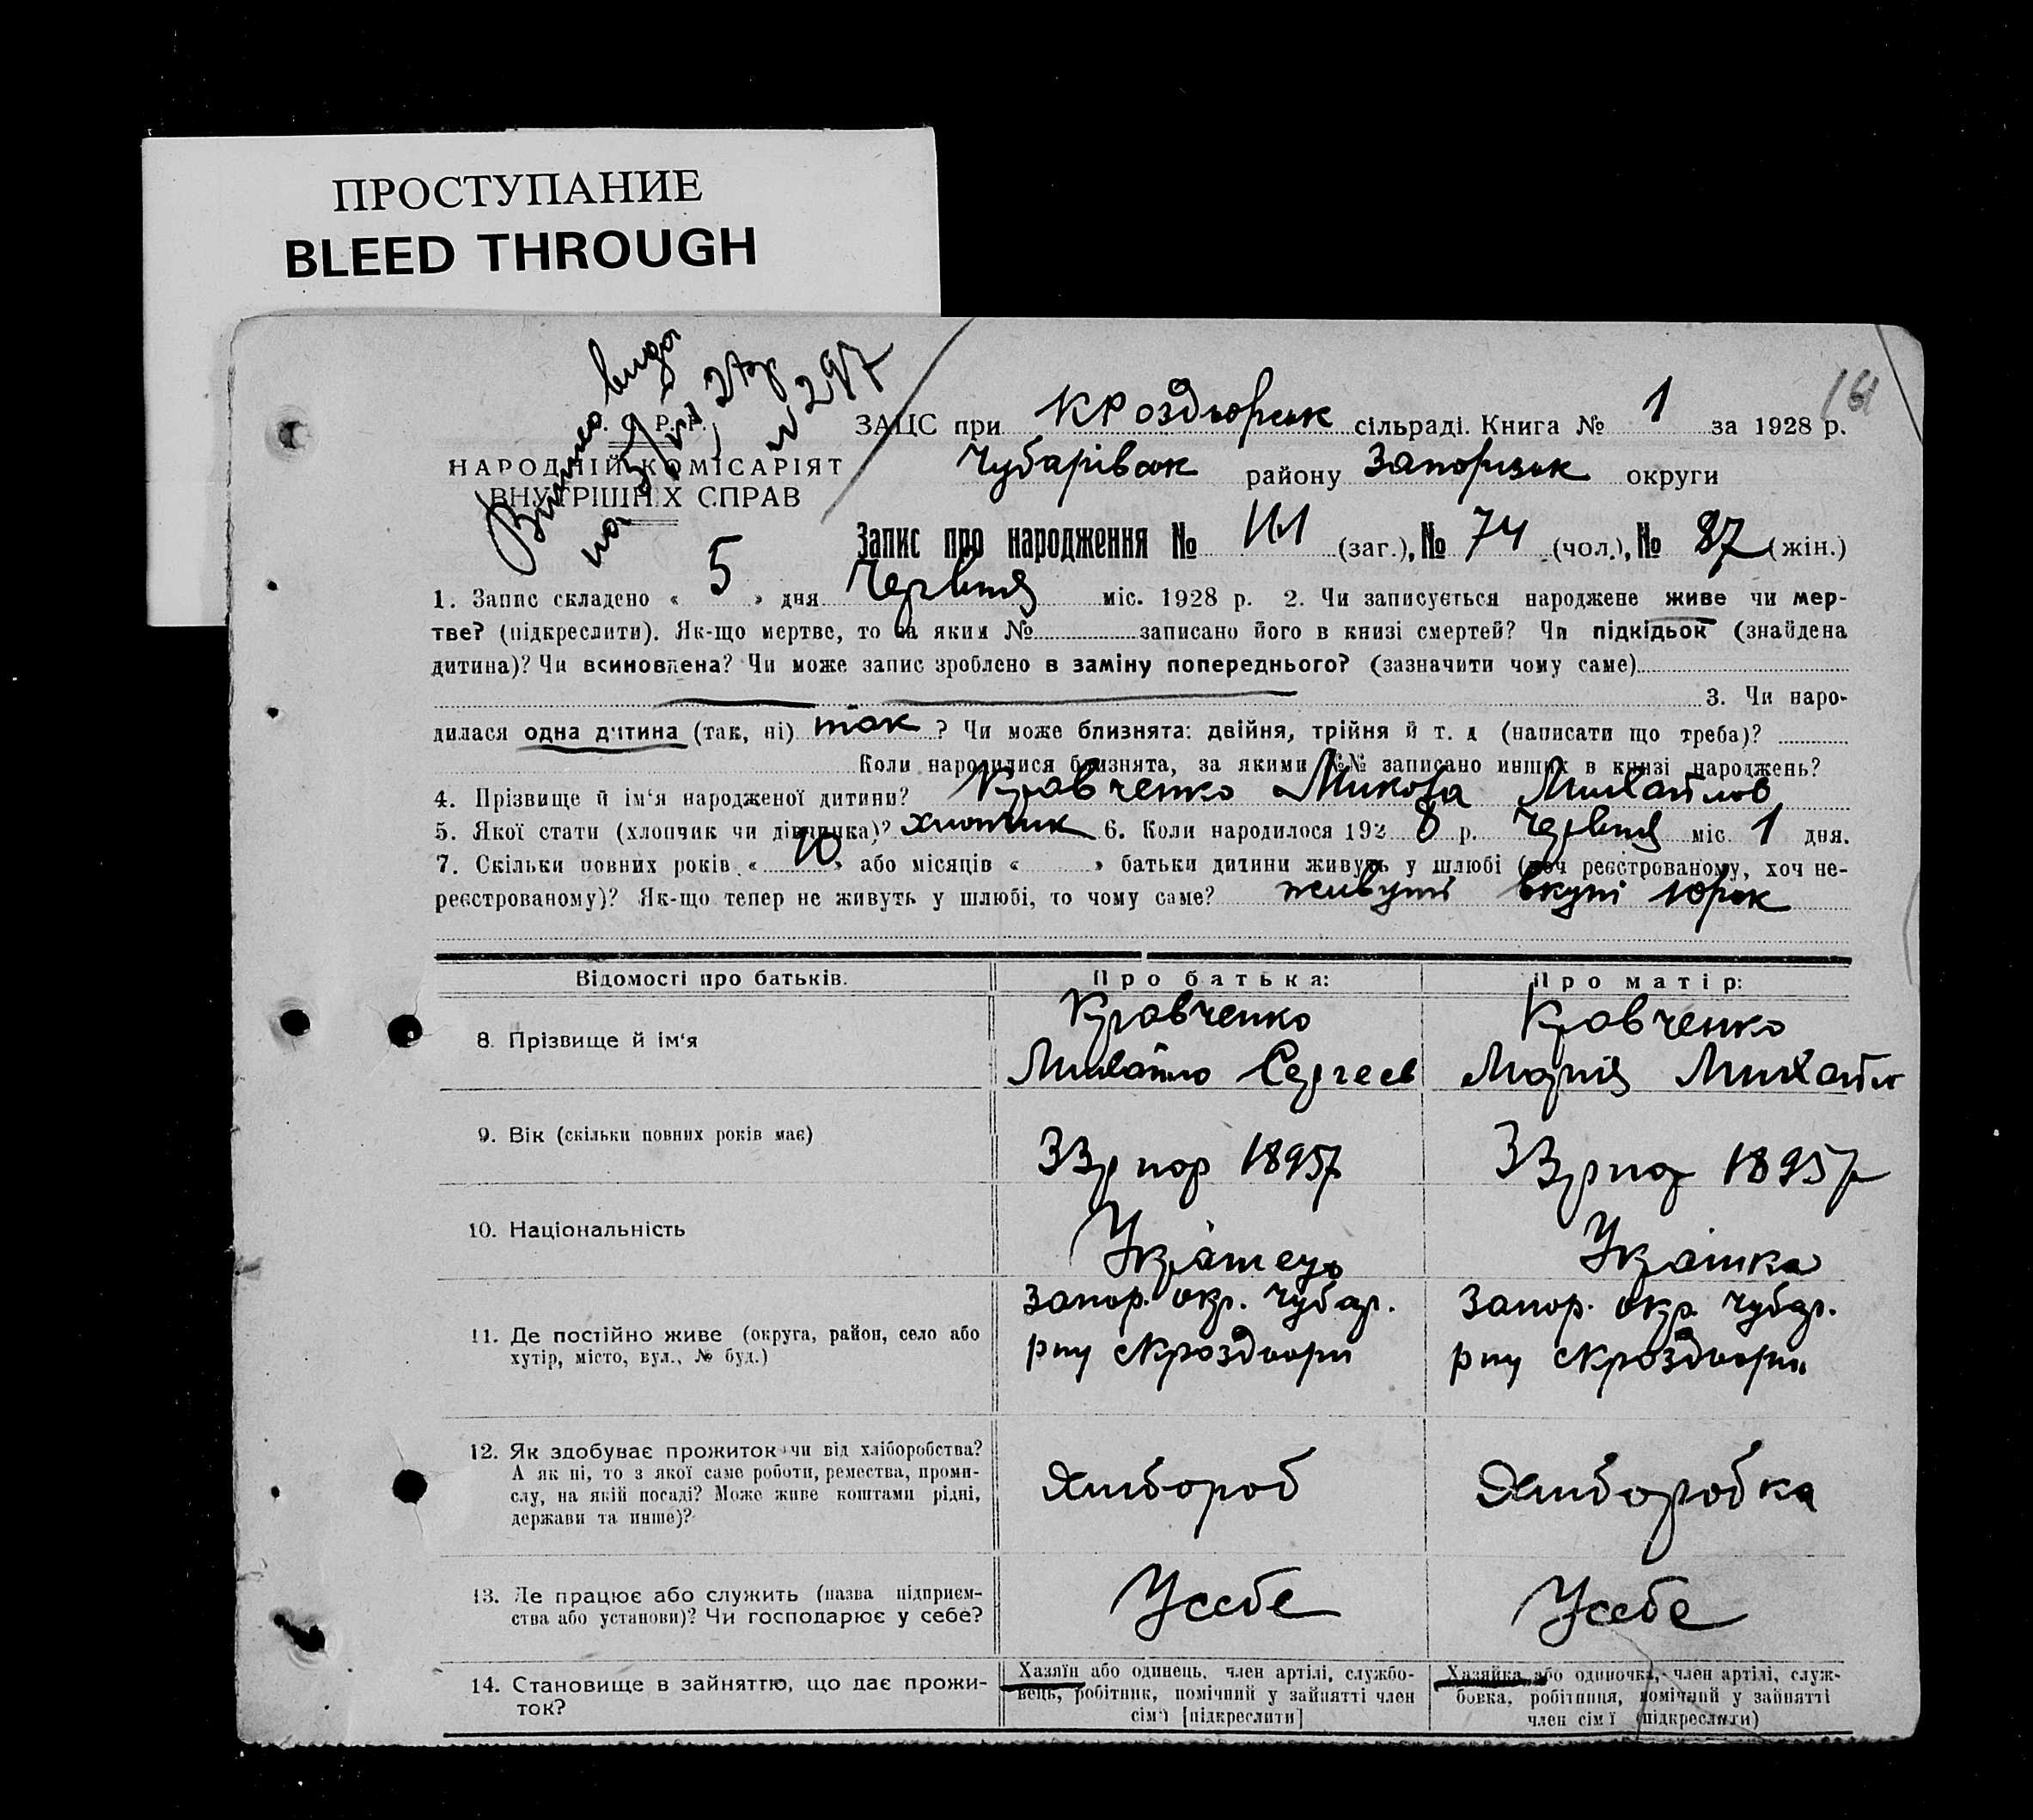 ПРОСТУПАНИЕ
BLEED THROUGH
161
У. С. Р. Р.
НАРОДНІЙ КОМІСАРІЯТ
ВНУТРІШНІХ СПРАВ
ЗАЦС при КРоздорськ сільраді. Книга № 1 за 1928 р.
Чубарівськ району Запорізьк округи
Запис про народження № 161 (заг.), № 74 (чол.), № 87 (жін.)
1. Запис складено « 5 » дня Червня міс. 1928 р. 2. Чи записується народжене живе чи мер-
тве? (підкреслити). Як-що мертве, то за яким № записано його в книзі смертей? Чи підкідьок (знайдена
дитина)? Чи всиновлена? Чи може запис зроблено в заміну попереднього? (зазначити чому саме)
3. Чи наро-
дилася одна дитина (так, ні) так ? Чи може близнята: двійня, трійня й т. д (написати що треба)?
Коли народилися близнята, за якими №№ записано инших в книзі народжень?
4. Прізвище й ім'я народженої дитини? Кравченко Микола Михайлов
5. Якої стати (хлопчик чи дівчинка)? хлопчик 6. Коли народилося 192 8 р. Червня міс. 1 дня.
7. Скільки повних років « 10 » або місяців « » батьки дитини живуть у шлюбі (хоч реєстрованому, хоч не-
реєстрованому)? Як-що тепер не живуть у шлюбі, то чому саме? живуть вкупі 10рок
Відомості про батьків. Про батька: Про матір:
8. Прізвище й ім'я Кравченко Михайло Сергеев Кравченко Марія Михайл
9. Вік (скільки повних років має) 33р нар 1895р 33р нар 1895р
10. Національність Українець Українка
11. Де постійно живе (округа, район, село або
хутір, місто, вул., № буд.)
Запор. окр. Чубар.
рну сКроздори
Запор. окр. Чубар.
рну сКроздори
12. Як здобуває прожиток: чи від хліборобства?
А як ні, то з якої саме роботи, ремества, проми-
слу, на якій посаді? Може живе коштами рідні,
держави та инше)?
Хлибороб Хлиборобка
13. Де працює або служить (назва підприєм-
ства або установи)? Чи господарює у себе?
Усебе Усебе
14. Становище в зайняттю, що дає прожи-
ток?
Хазяїн або одинець, член артілі, службо-
вець, робітник, помічний у зайнятті член
сім'ї [підкреслити]
Хазяйка або одиночка, член артілі, служ-
бовка, робітниця, помічний у зайнятті
член сім'ї (підкреслити)